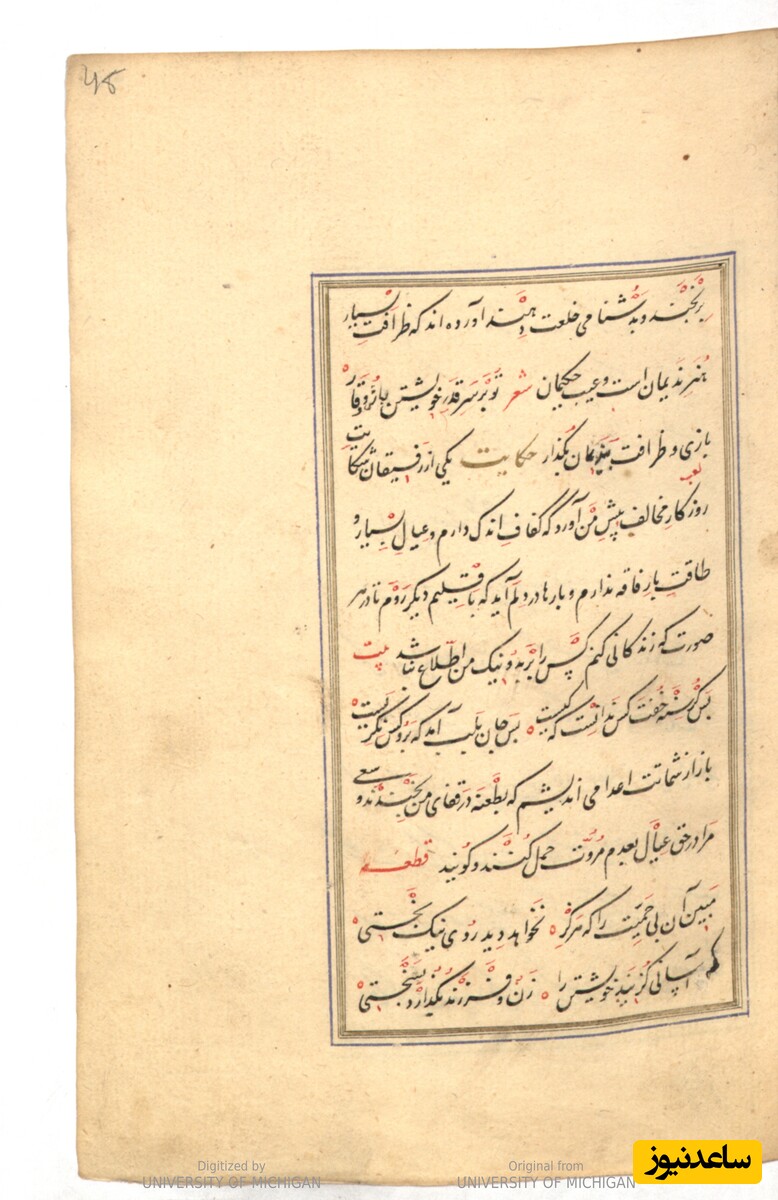 45
برنجند و بدشنامی خلعت دهند آورده اند که ظرافت بسیار
هنر ندیمان است و عیب حکیمان شعر تو بر سر قدر خویشتن باش و وقار
بازی و ظرافت بندیمان بگذار حکایت یکی از رفیقان شکایت
لعب
روزکار مخالف پیش من آورد که کفاف اندک دارم و عیال بسیار و
طاقت بار فاقه ندارم و بارها در دلم آید که باقلیم دیکر روم تا در هر
صورت که زندکانی کنم کسی را بر بد و نیک من اطلاع نباشد بیت
بس کرسنه خفت کس ندانست که کیست بس جان بلب آمد که برو کس نکریست
باز از شماتت اعدا می اندیشم که بطعنه در قفای من بخندند و سعی
مرا در حق عیال بعدم مروت حمل کنند و کویند قطعه
مبین آن بی حمیت را که هرکز نخواهد دید روی نیک بختی
که آسانی کزیند خویشتن را زن و فرزند بکذارد بسختی
Digitized by
UNIVERSITY OF MICHIGAN
Original from
UNIVERSITY OF MICHIGAN
ساعدنیوز